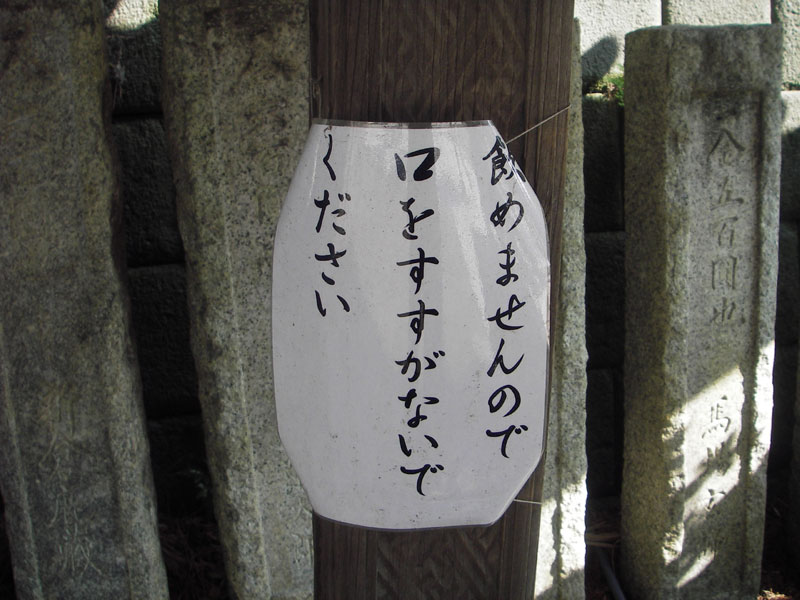 飲めませんので
口をすすがないで
ください
金五百円也